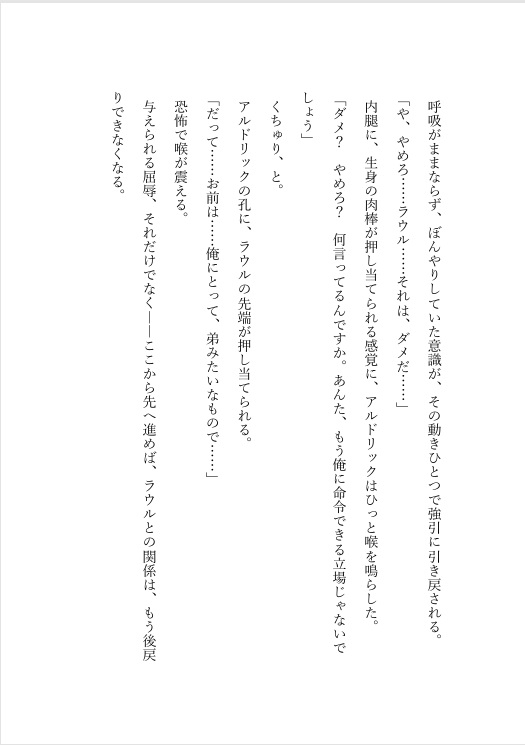 呼吸がままならず、ぼんやりしていた意識が、その動きひとつで強引に引き戻される。
「や、やめろ……ラウル……それは、ダメだ……」
内腿に、生身の肉棒が押し当てられる感覚に、アルドリックはひっと喉を鳴らした。
「ダメ？　やめろ？　何言ってるんですか。あんた、もう俺に命令できる立場じゃないで
しょう」
くちゅり、と。
アルドリックの孔に、ラウルの先端が押し当てられる。
「だって……お前は……俺にとって、弟みたいなもので……」
恐怖で喉が震える。
与えられる屈辱、それだけでなく――ここから先へ進めば、ラウルとの関係は、もう後戻
りできなくなる。